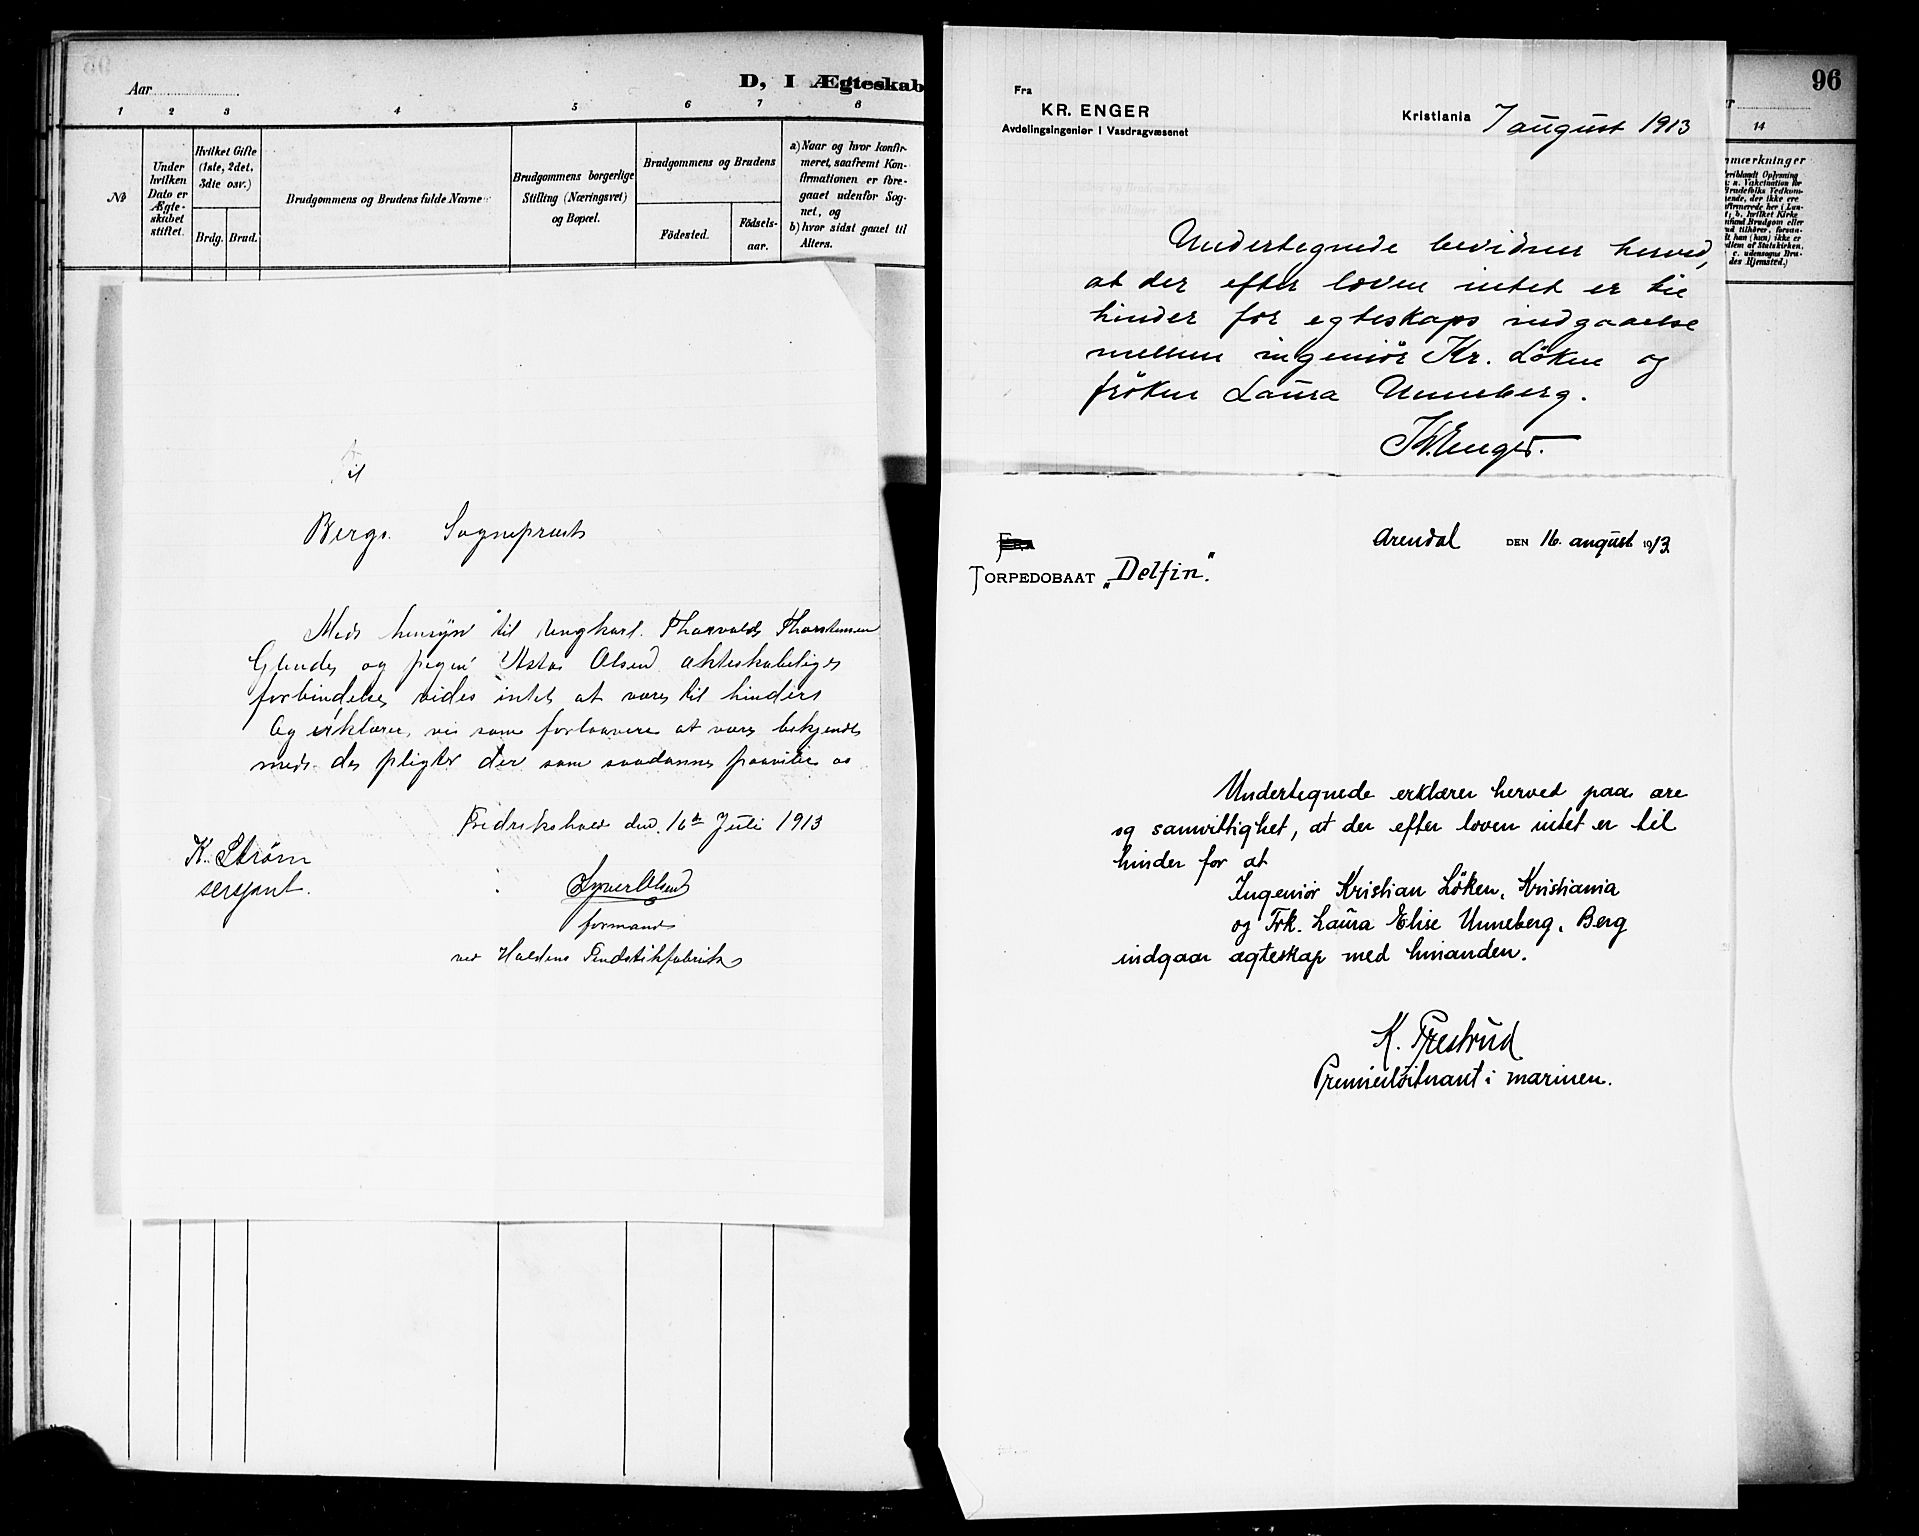 Aar
D, I Ægteskab
1 2 3 4 5 6 7 8
No
Under hvilken Dato er Ægteskabet stiftet.
Hvilket Gifte (1ste, 2det, 3die osv.)
Brdg. Brud.
Brudgommens og Brudens fulde Navne
Brudgommens borgerlige Stilling (Næringsvei) og Bopæl.
Brudgommens og Brudens
Födested.
Födselsaar.
a) Naar og hvor konfir-
meret, saafremt Kon-
firmationen er fore-
gaaet udenfor Sog-
net, og
b) hvor sidst gaaet til
Alters.
Til
Bergs Sognepræst
Med hensyn til Ungkarl. Thorvald Thorstensen
og pigen Asta Olsen akteskabelige
forbindelse vides intet at være til hinder
Og erklærer vi som forlovere at være bekjendt
med de pligter der som saadanne paaviler os
Fredrikshald den 16de Juli 1913
K. Strøm
sersjant.
Olsen
formand
ved Haldens Tendstikfabrik
Fra
KR. ENGER
Avdelingsingeniør i Vasdragvæsenet
Kristiania 7 august 1913
Undertegnede bevidner herved,
at der efter loven intet er til
hinder for egteskaps indgaaelse
mellem ingeniør Kr. Löken og
fröken Laura Unneberg.
Kr. Enger.
Fra
TORPEDOBAAT „Delfin”.
Arendal DEN 16. august 1913
Undertegnede erklærer herved paa ære
og samvittighet, at der efter loven intet er til
hinder for at
Ingeniør Kristian Löken, Kristiania
og Frk. Laura Elise Unneberg, Berg
indgaar ægteskap med hinanden.
K. Prestrud
Premierløitnant i marinen.
96
14
nmærkninger